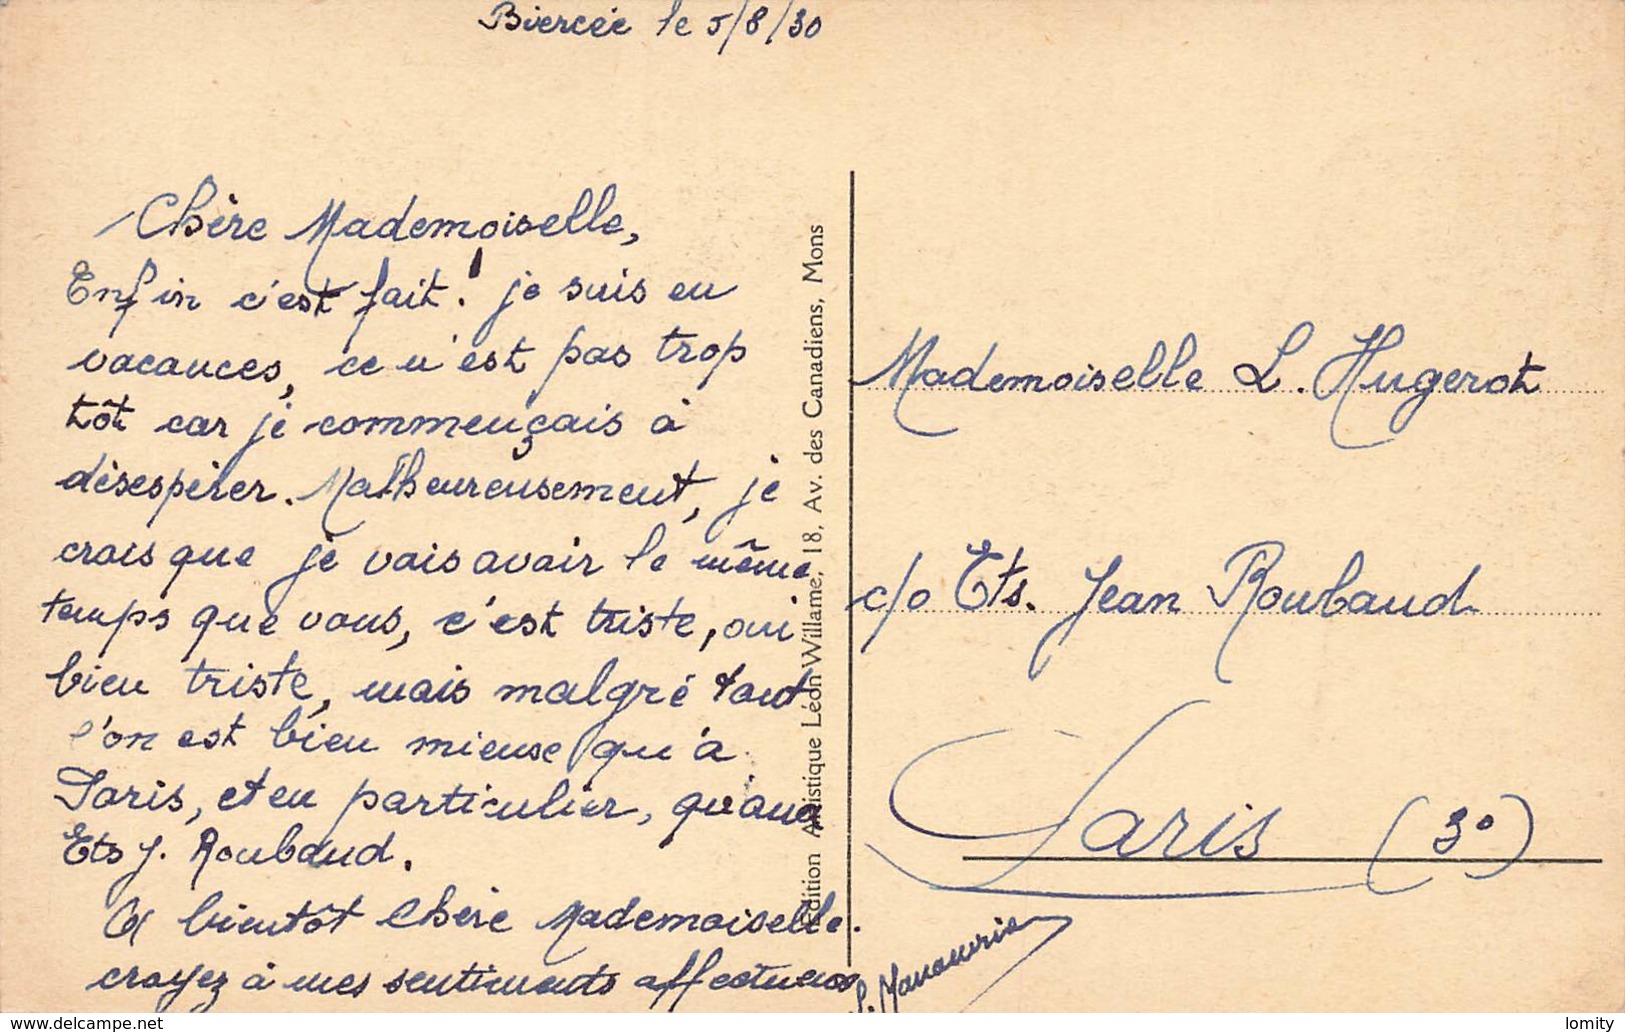 Biercée le 5/8/30
Chère Mademoiselle,
Enfin c'est fait! je suis en
vacances, ce n'est pas trop
tôt car je commençais à
désespérer. Malheureusement, je
crois que je vais avoir le même
temps que vous, c'est triste, oui
bien triste, mais malgré tout
l'on est bien mieuse qu'à
Paris, et en particulier, qu'aux
Ets J. Roubaud.
A bientôt Chère Mademoiselle.
croyez à mes sentiments affectueux
Edition Artistique Léon Willame, 18, Av. des Canadiens, Mons
Mademoiselle L. Hugerot
c/o Ets. Jean Roubaud
Paris (3º)
www.delcampe.net
lomity